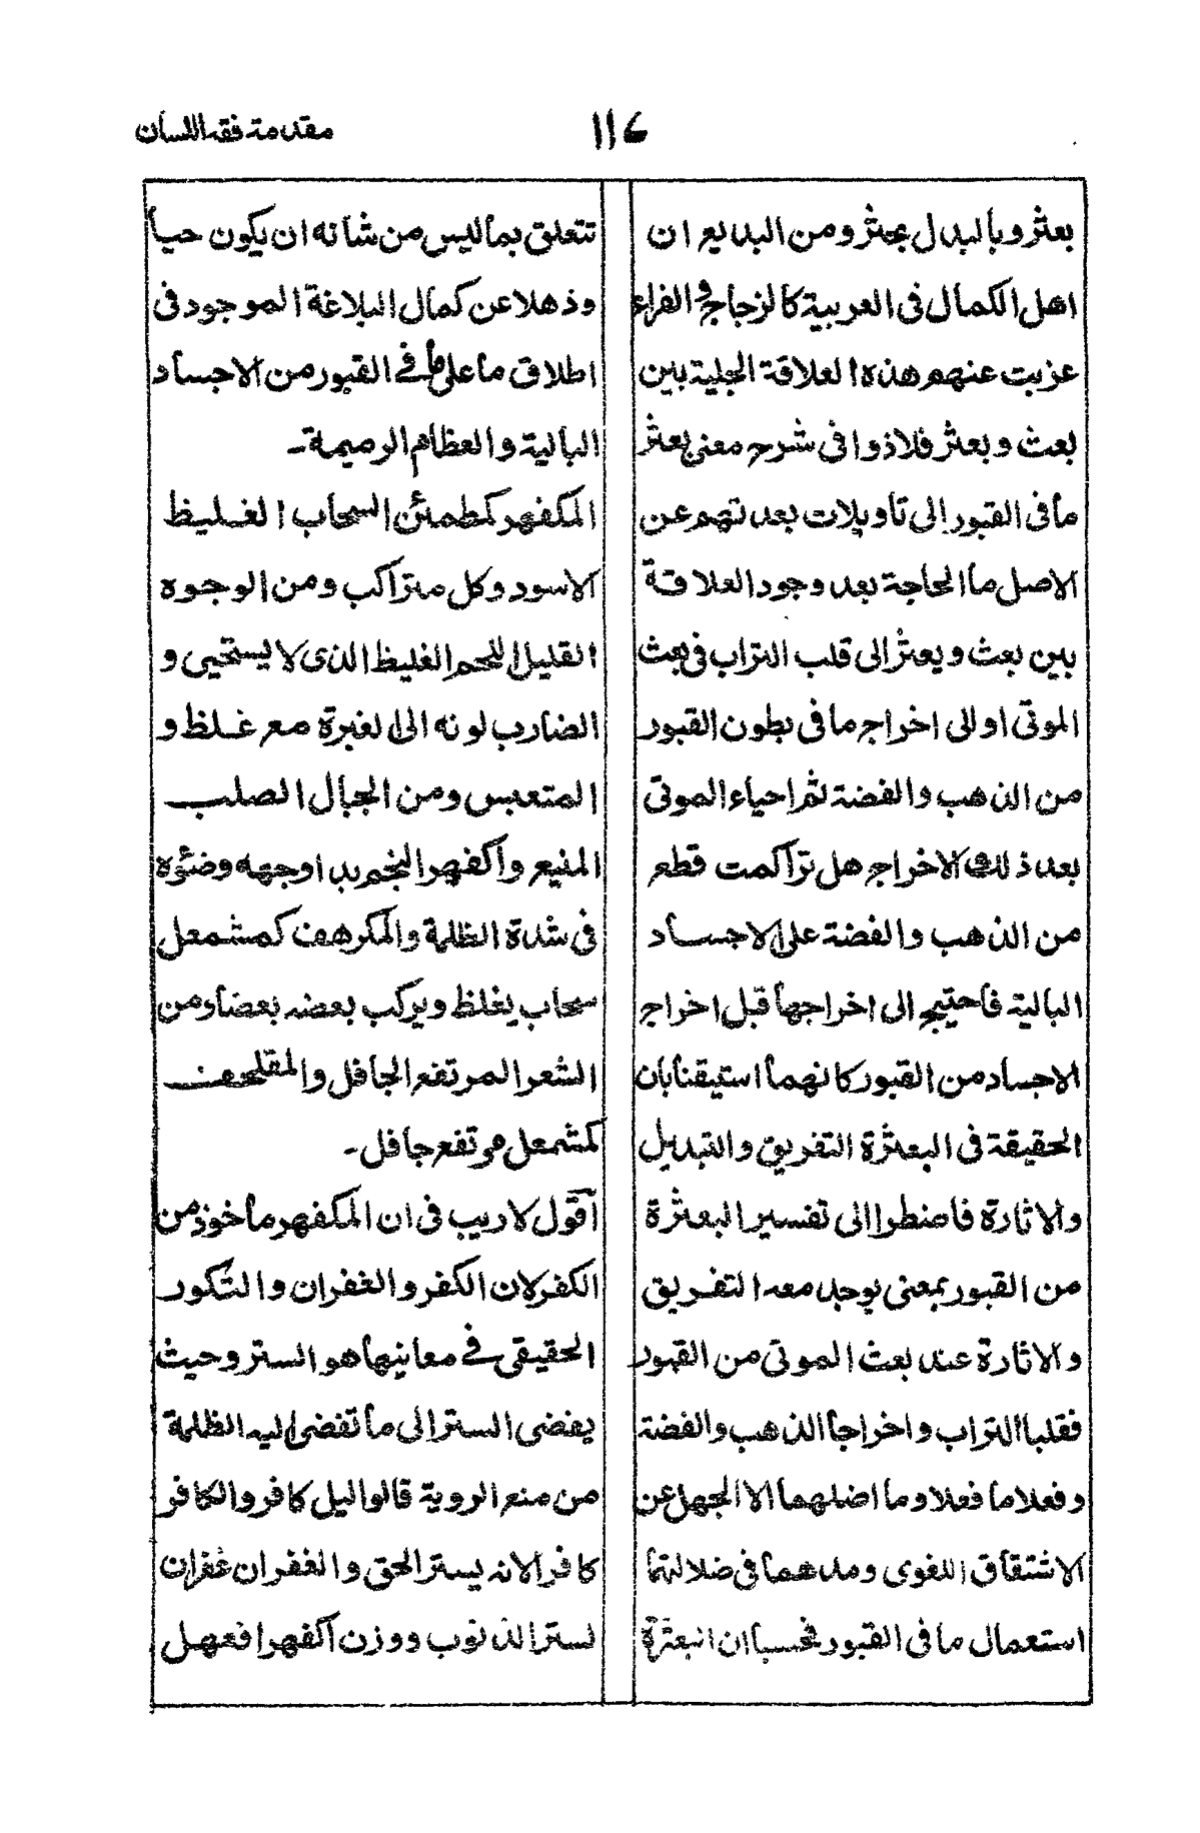 مقدمة فقه اللسان
١١٦
بعثر وبالبدل بحثر ومن البديع ان
اهل الكمال فى العربية كالزجاج والفراء
عزبت عنهم هذه العلاقة الجلية بين
بعث وبعثر فلاذوا فى شرح معنى بعثر
ما فى القبور الى تاويلات بعدتهم عن
الاصل ما الحاجة بعد وجود العلاقة
بين بعث وبعثر الى قلب التراب فى بعث
الموتى او الى اخراج ما فى بطون القبور
من الذهب والفضة ثم احياء الموتى
بعد ذلك الاخراج هل تراكمت قطع
من الذهب والفضة على الاجساد
البالية فاحتيج الى اخراجها قبل اخراج
الاجساد من القبور كانهما استيقنا بان
الحقيقة فى البعثرة التفريق والتبديل
والاثارة فاضطرا الى تفسير البعثرة
من القبور بمعنى يوجد معه التفريق
والاثارة عند بعث الموتى من القبور
فقلبا التراب واخرجا الذهب والفضة
وفعلا ما فعلا وما اضلهما الا الجهل عن
الاشتقاق اللغوى ومدهما فى ضلالتهما
استعمال ما فى القبور فحسبا ان البعثرة
تتعلق بما ليس من شانه ان يكون حيا
وذهلا عن كمال البلاغة الموجود فى
اطلاق ما على ما فى القبور من الاجساد
البالية والعظام الرميمة۔
المكفهر كمطمئن السحاب الغليظ
الاسود وكل متراكب ومن الوجوه
القليل اللحم الغليظ الذى لا يستحيى و
الضارب لونه الى الغبرة مع غلظ و
المتعبس ومن الجبال الصلب
المنيع واكفهر النجم بدا وجهه وضئوه
فى شدة الظلمة والمكرهف كمشمعل
سحاب يغلظ ويركب بعضه بعضا ومن
الشعر المرتفع الجافل والمقلحف
كمشمعل مرتفع جافل۔
آقول لا ريب فى ان المكفهر ماخوذ من
الكفر لان الكفر والغفران والتكور
الحقيقى فى معانيها هو الستر وحيث
يفضى الستر الى ما تفضى اليه الظلمة
من منع الروية قالوا ليل كافر والكافر
كافر لانه يستر الحق والغفران غفران
لستر الذنوب ووزن اكفهر افعهل